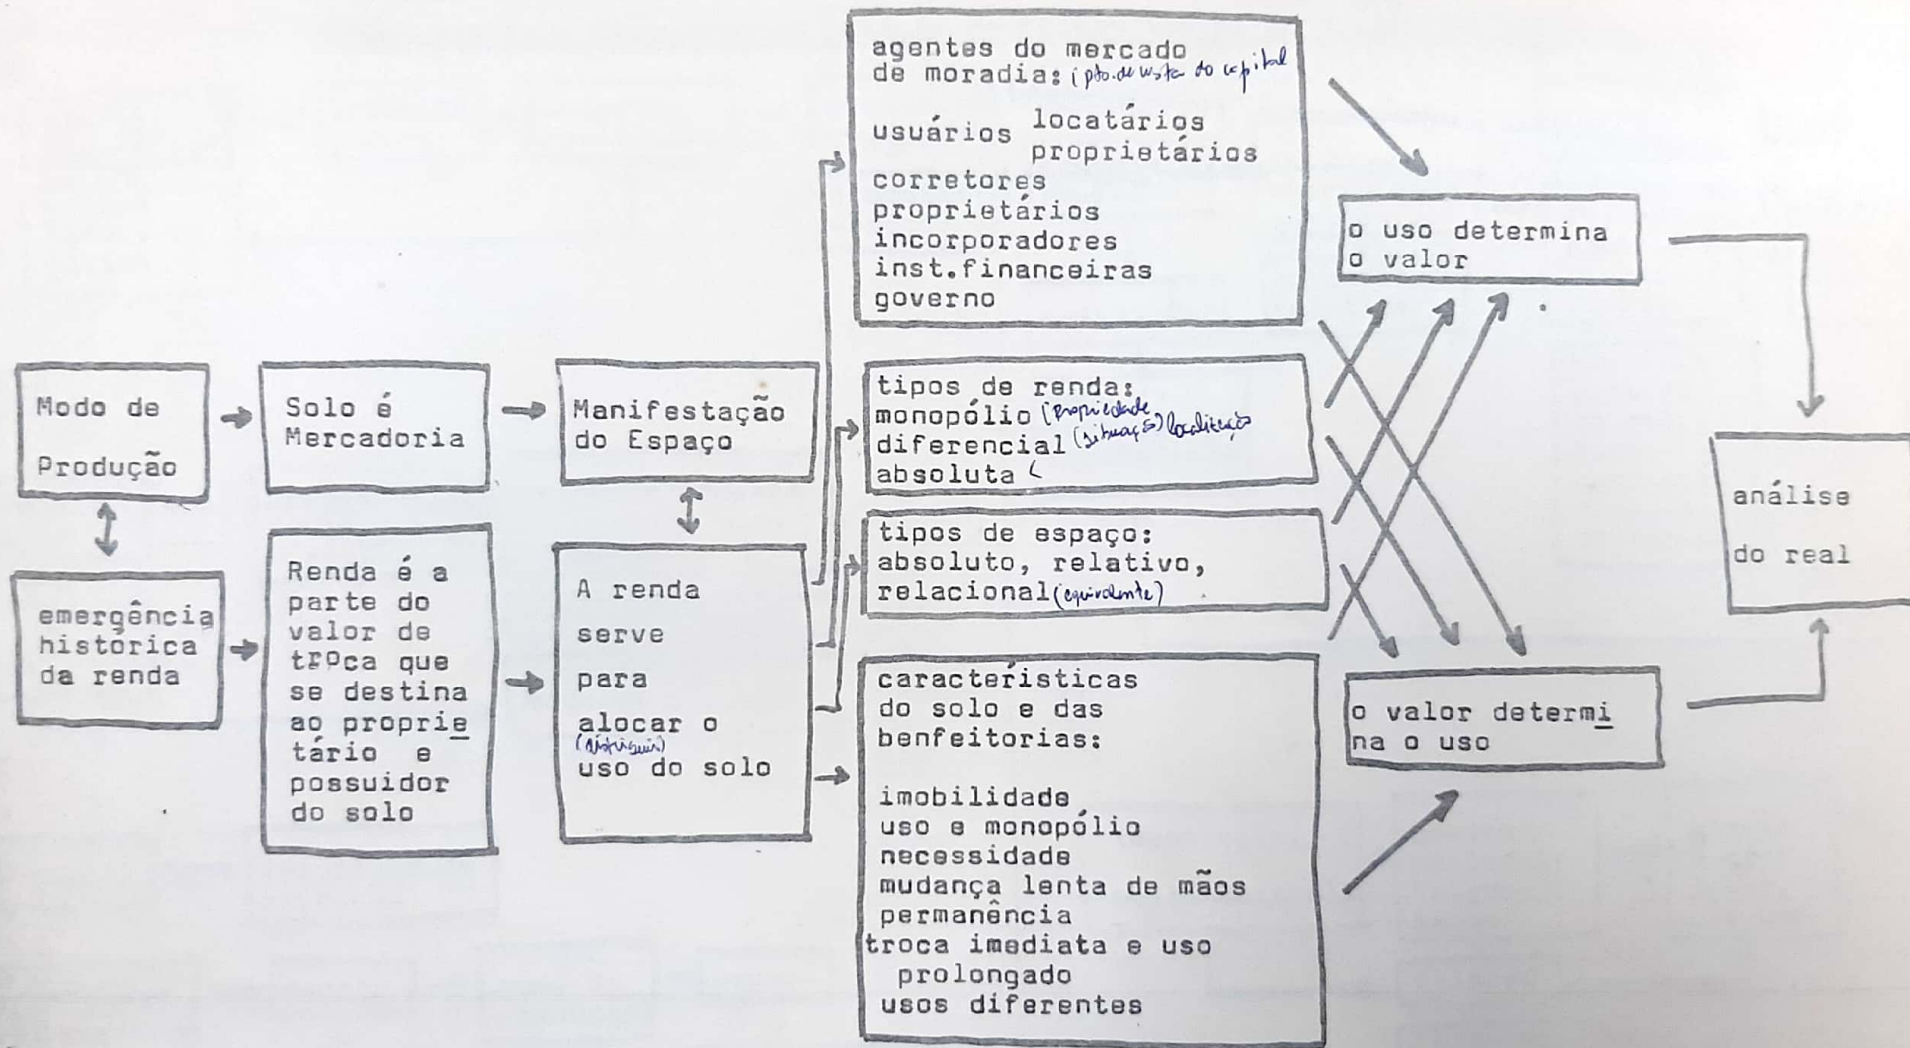 Modo de
Produção
emergência
histórica
da renda
Solo é
Mercadoria
Renda é a
parte do
valor de
troca que
se destina
ao proprie
tário e
possuidor
do solo
Manifestação
do Espaço
A renda
serve
para
alocar o
uso do solo
agentes do mercado
de moradia: (pto. de vista do capital
usuários locatários
proprietários
corretores
proprietários
incorporadores
inst.financeiras
governo
tipos de renda:
monopólio (propriedade
diferencial (situação) localização
absoluta (
tipos de espaço:
absoluto, relativo,
relacional (equivalente)
características
do solo e das
benfeitorias:
imobilidade
uso e monopólio
necessidade
mudança lenta de mãos
permanência
troca imediata e uso
prolongado
usos diferentes
o uso determina
o valor
o valor determi
na o uso
análise
do real